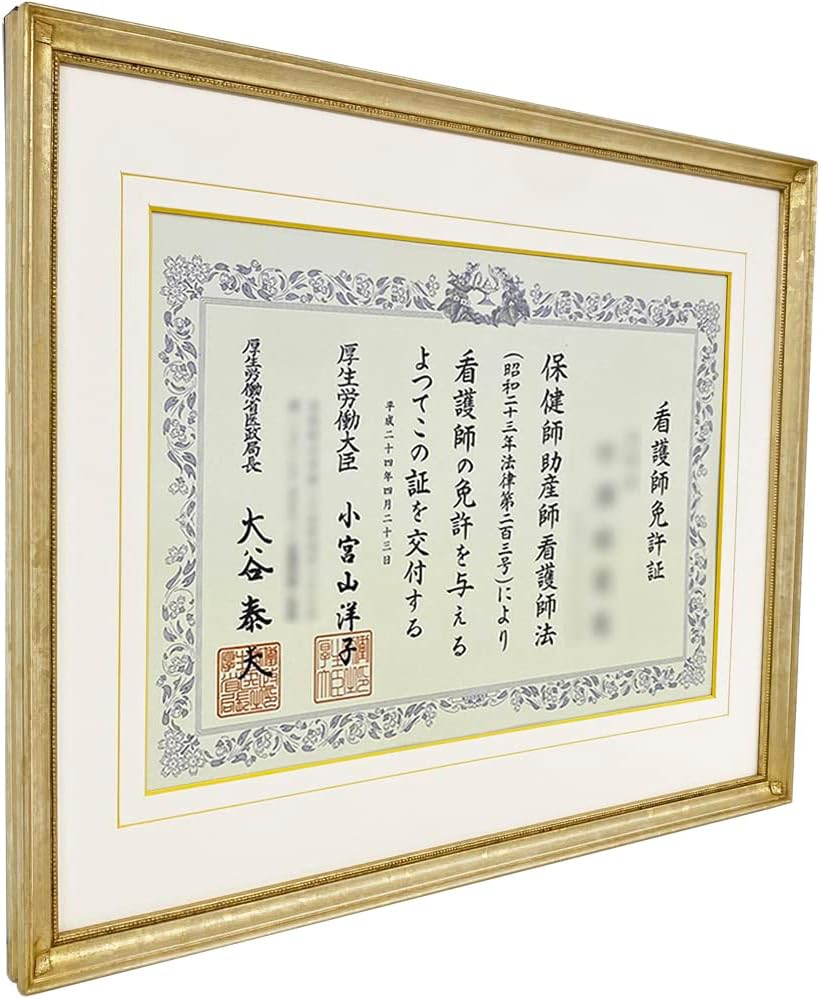 看護師免許証
保健師助産師看護師法
(昭和二十三年法律第二百三号)により
看護師の免許を与える
よつてこの証を交付する
平成二十四年四月二十三日
厚生労働大臣 小宮山洋子
厚生労働省医政局長 大谷泰夫